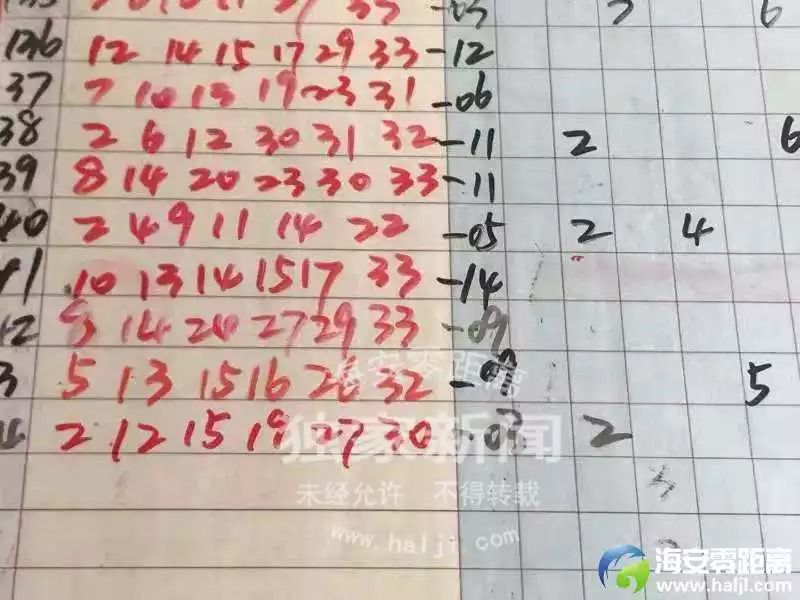 33 -03
136 12 14 15 17 29 33 -12
37 7 10 13 19 23 31 -06
38 2 6 12 30 31 32 -11 2 6
39 8 14 20 23 30 33 -11
40 2 4 9 11 14 22 -05 2 4
41 10 13 14 15 17 33 -14
12 14 24 27 29 33 -09
3 5 13 15 16 26 32 5
4 2 12 15 19 27 30 2
海安零距离
独家新闻
未经允许 不得转载
www.halj1.com
海安零距离
www.halj1.com